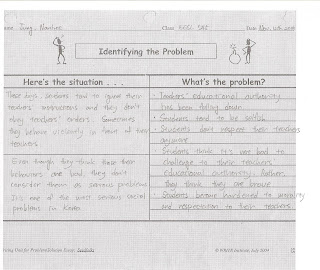 Class
Identifying the Problem
Here's the situation . . .
What's the problem?
These days, students tend to ignore their
teachers' instructions and they don't
obey teachers' orders. Sometimes
they behave violently in front of
teachers.
Even though they think that these
behaviors are bad, they don't
consider them as serious problems.
It's one of the most serious social
problems in Korea.
• Teachers' educational authority
has been falling down.
• Students tend to be selfish.
• Students don't respect their teachers
anymore.
Students think it's not bad to
challenge to their teachers'
educational authority. Rather,
they think they are brave.
Students become hardened to
and respection to their teachers.